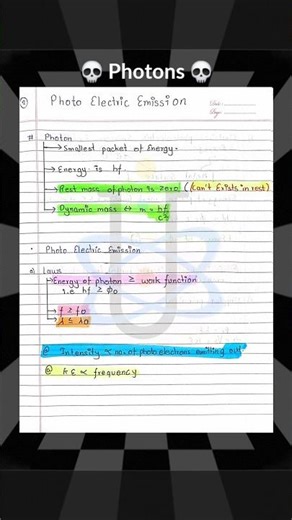 💀 Photons 💀
Photo Electric Emission
Date:
Page:
# Photon
→ Smallest packet of Energy.
→ Energy is hf.
→ Rest mass of photon is zero. (Can't Exists in rest)
→ Dynamic mass ↔ m = hf/c²
• Photo Electric Emission
Laws
→ Energy of photon ≥ work function
i.e hf ≥ ϕ0
→ f ≥ f0
→ λ ≤ λ0
@ Intensity ∝ no. of photo electrons emitting out
@ KE ∝ frequency